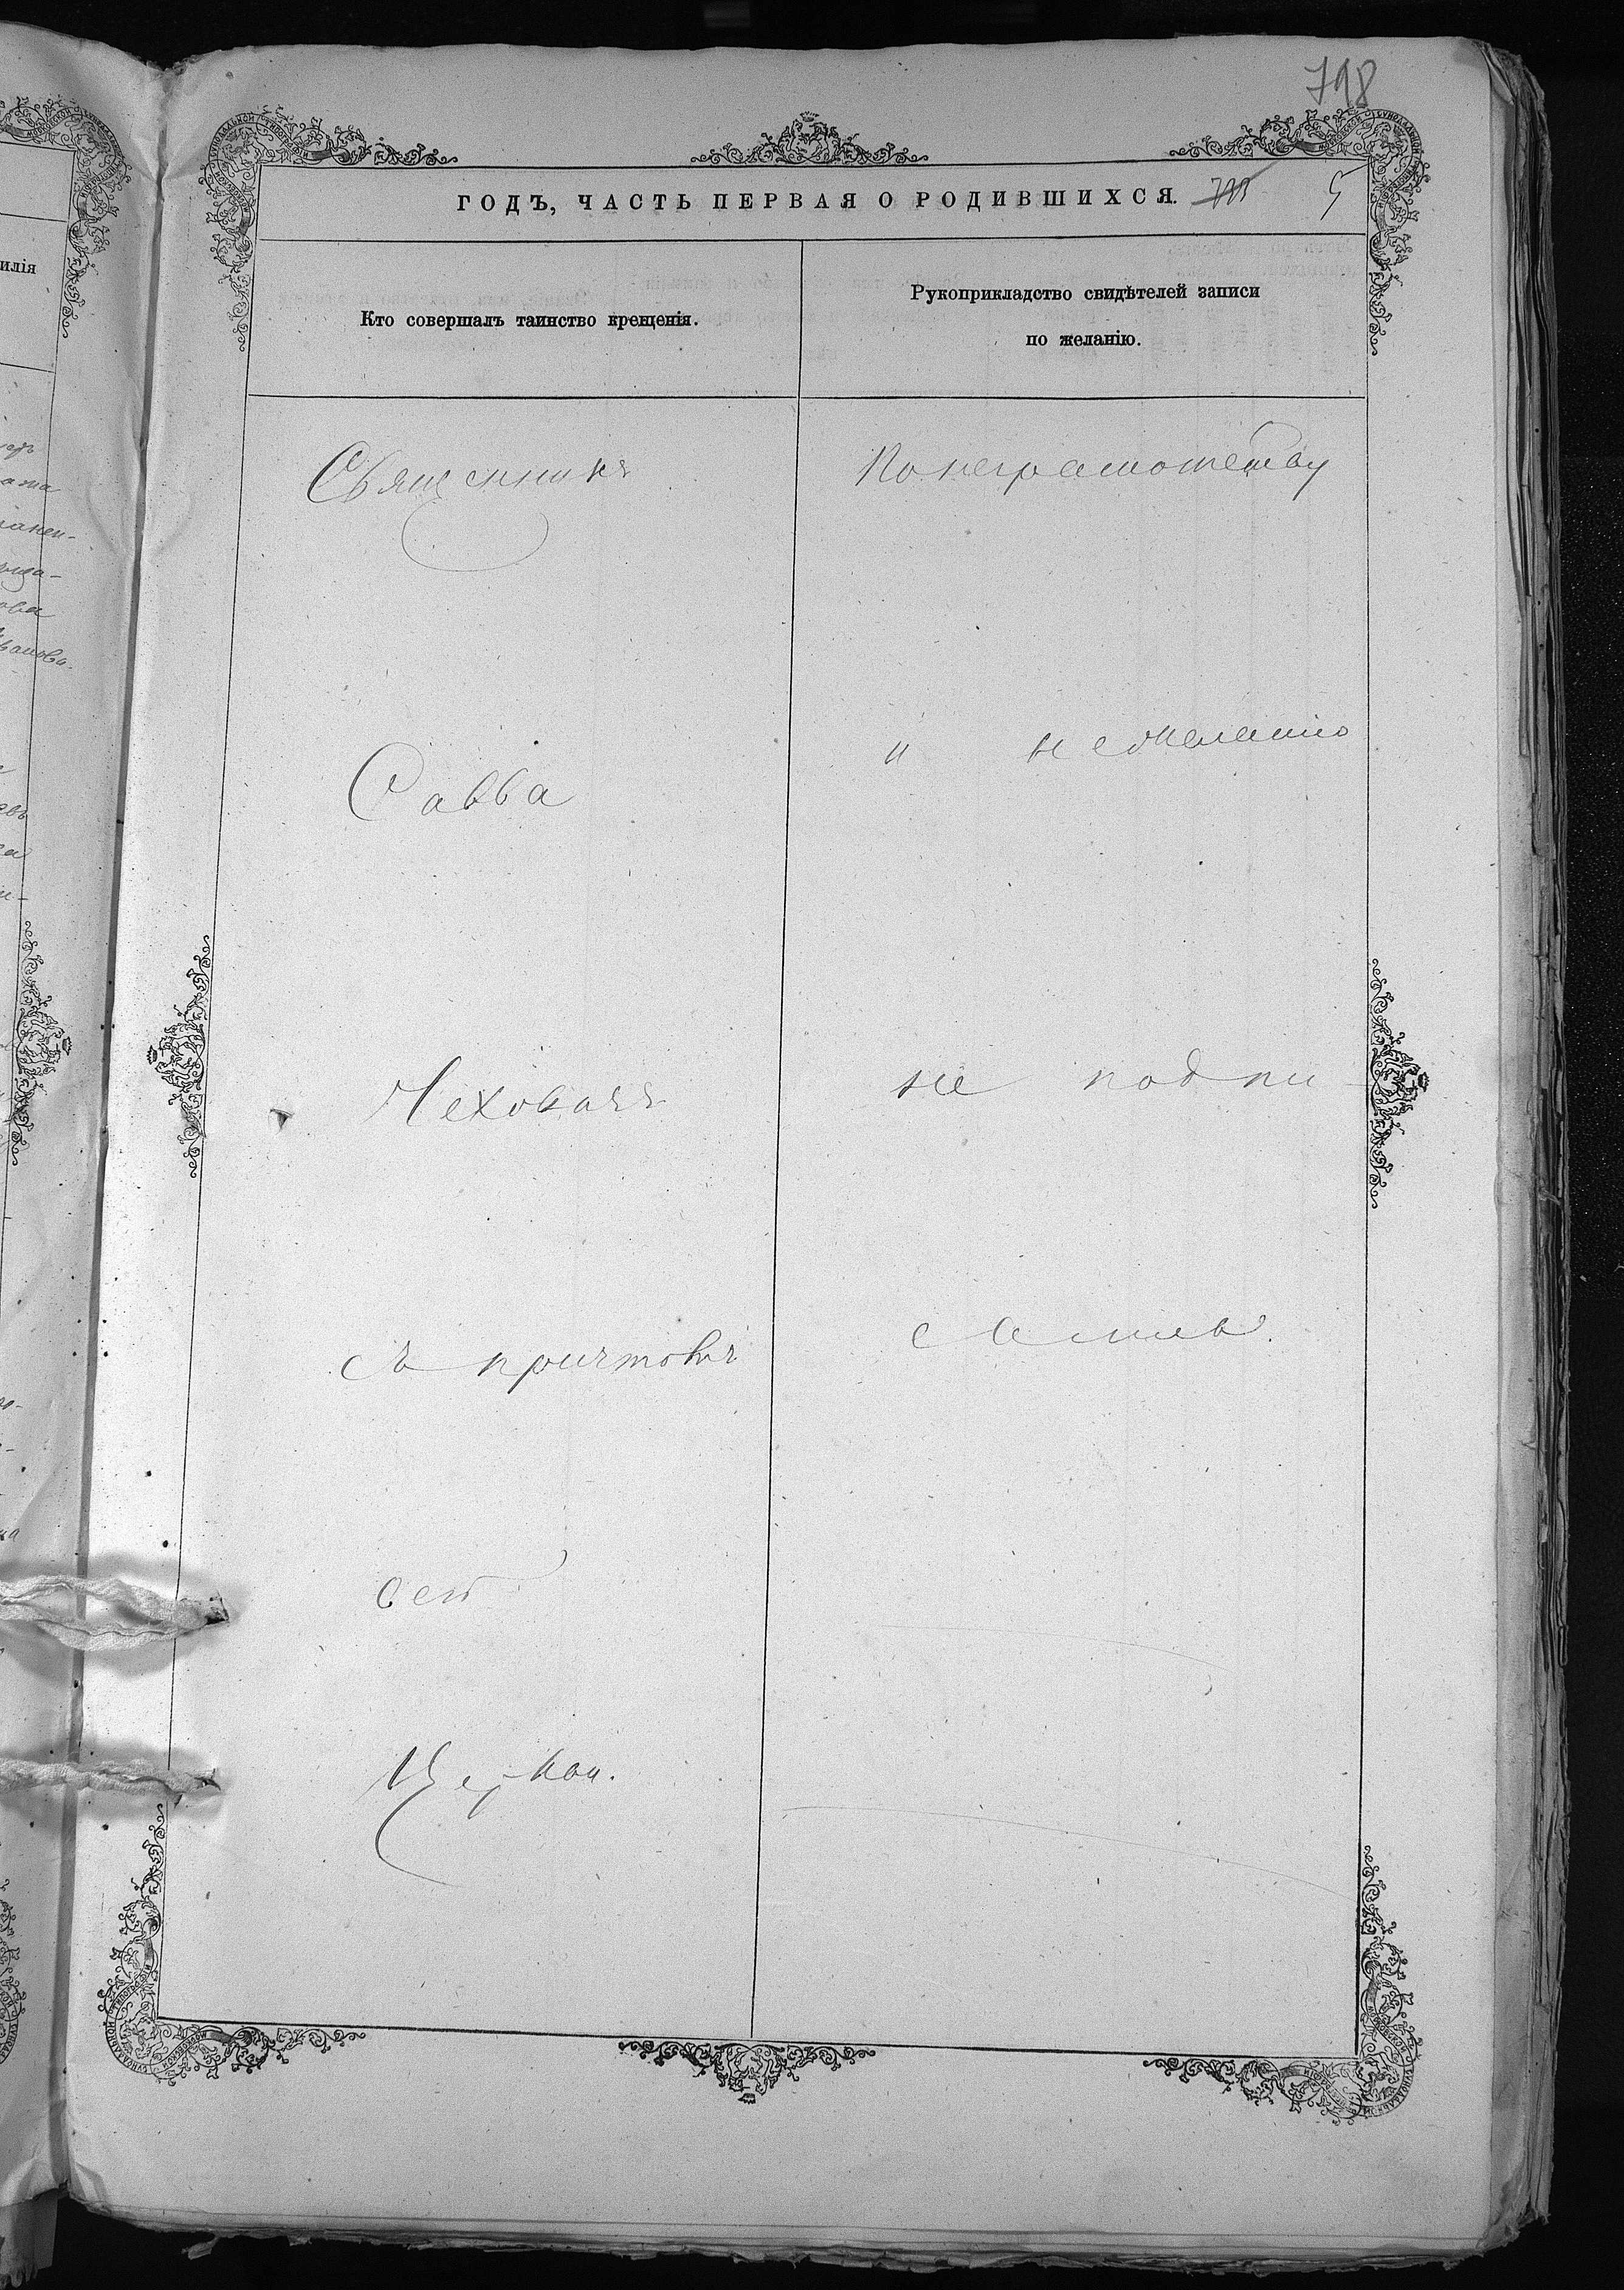 798
ГОДЪ, ЧАСТЬ ПЕРВАЯ О РОДИВШИХСЯ.
5
илія
Кто совершалъ таинство крещенія.
Рукоприкладство свидѣтелей записи
по желанію.
Священникъ
Савва
Чеховичъ
съ причтомъ
сей
Церкви.
По неграмотству
и нежеланію
не подпи-
сались.